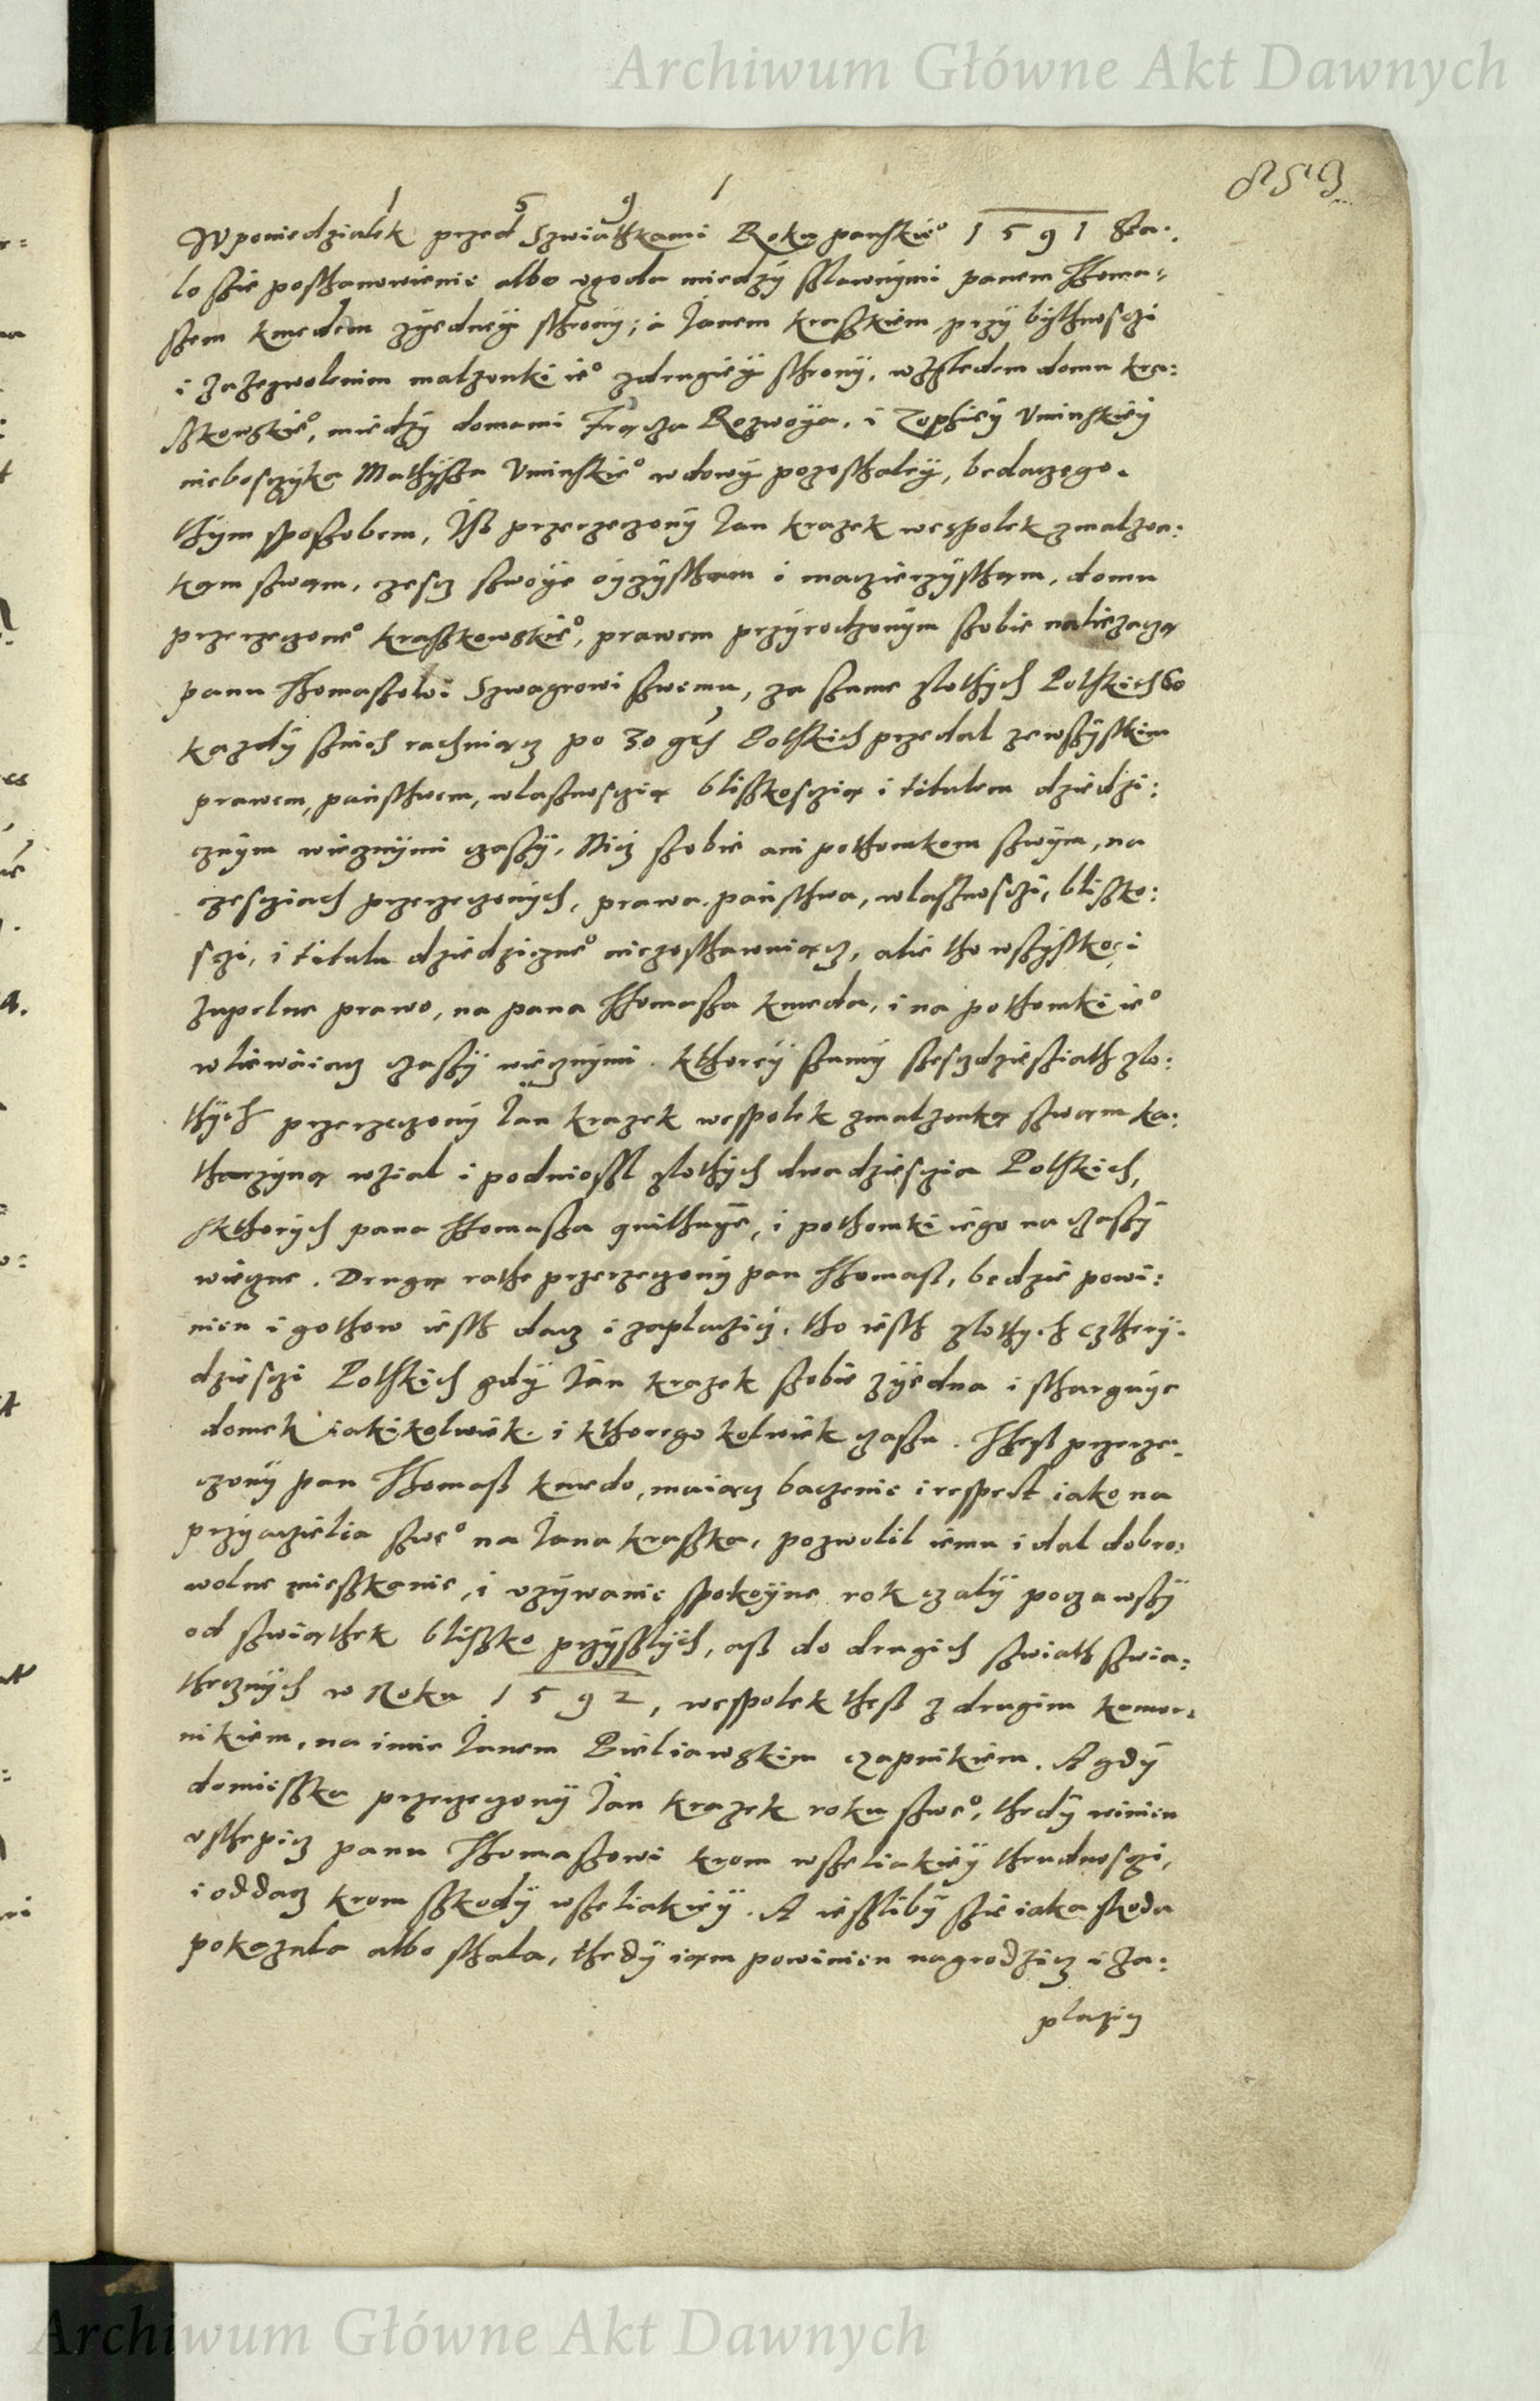 Archiwum Główne Akt Dawnych
1 5 9 1
W poniedzialek przed Szwiątkami Roku panskie° 1591 Sta:
lo szie posthanowienie albo vgoda miedzÿ sslawnÿmi panem Thoma-
szem kmedem zÿednÿeÿ sthronÿ; a Janem kraszkiem przÿ bÿthnosczi
i zazezwolenim malzonki ie° zdrugieÿ sthronÿ, wzgledem domu kra:
szkowskie°, miedzÿ domami Frącza Rozwoÿa, i Zophieÿ Vminskieÿ
nieboszczÿka Mathÿsza Vminskie° wdowÿ pozosthaleÿ, bedaczego.
thÿm sposzobem, Jsz przerzeczonÿ Jan krazek wespolek zmalzon:
kąm szwąm, czescz szwoÿe oÿczÿsthąm i maczierzÿsthąm, domu
przerzeczone° kraszkowskie°, prawem przÿrodzonÿm szobie nalieżączą
panu Thomaszowi Szwagrowi szwemu, za szume zlothÿch Polskich 60
kazdÿ sznich rachuiącz po 30 grch Polskich przedal zewszÿstkim
prawem, pansthwem, wlasznosczią bliszkosczią i titulem dziedzi:
cznÿm wiecznÿmi czaszÿ, Nicz szobie ani pothomkom szwÿm, na
czesciach przerzeczonÿch, prawa, pansthwa, wlasznosczi, bliszko:
sczi, i titulu dziedziczne° niezosthawuiącz, alie tho wszÿstko, i
zupelne prawo, na pana Thomasza kmeda, i na pothomki ie°
wliewaiącz czaszÿ wiecznÿmi. Kthoreÿ szumÿ szesczdziesziath zlo:
thÿch przerzeczonÿ Jan krazek wesspolek zmalzonką szwąm ka:
tharzÿną wzial i podniossl zlothÿch dwadziesczia Polskich,
skthorÿch pana Thomasza quithuÿe, i pothomki iego na czaszÿ
wieczne. Drugą rathe przerzeczonÿ pan Thomasz, bedzie powi:
nien i gothow iesth dacz i zaplaczicz, tho iesth zlothÿch czterÿ.
dziesczi Polskich gdÿ Jan krazek szobie zÿedna i stharguÿe
domek iakikolwiek i kthorego kolwiek czaszu. Thesz przerze-
czonÿ pan Thomasz kmedo, maiącz baczenie i respect iako na
przÿaczielia szwe° na Jana kraszka, pozwolil iemu i dal dobro:
wolne mieszkanie, i vzÿwanie spokoÿne rok czalÿ poczawszÿ
od szwiąthek bliszko przÿszlÿch, asz do drugich szwiath szwia:
thecznÿch w Roku 1592, wesspolek thesz z drugim komor:
nikiem, na imie Janem Bieliawskim czapnikiem. A gdÿ
domieszka przerzeczonÿ Jan krazek roku szwe°, thedÿ winien
vsthepicz panu Thomaszowi krom wszeliakieÿ thrudnosczi,
i oddacz krom szkodÿ wszeliakieÿ. A ieszlibÿ szie iaka skoda
pokazala albo sthala, thedÿ iąm powinien nagrodzicz i za:
placzicz
Archiwum Główne Akt Dawnych